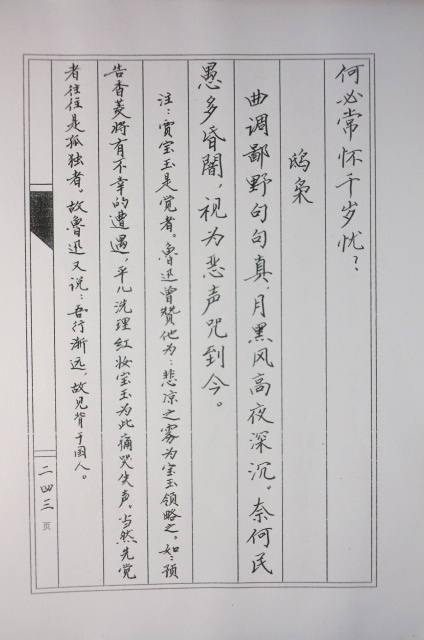 何必常怀千岁忧？
鸱枭
曲调鄙野句句真，月黑风高夜深沉。奈何民
愚多昏闇，视为恶声咒到今。
注：贾宝玉是觉者。鲁迅曾赞他为：悲凉之雾为宝玉领略之。如：预
告香菱将有不幸的遭遇，平儿洗理红妆宝玉为此痛哭失声。当然先觉
者往往是孤独者。故鲁迅又说：吾行渐远，故见背于国人。
二四三页